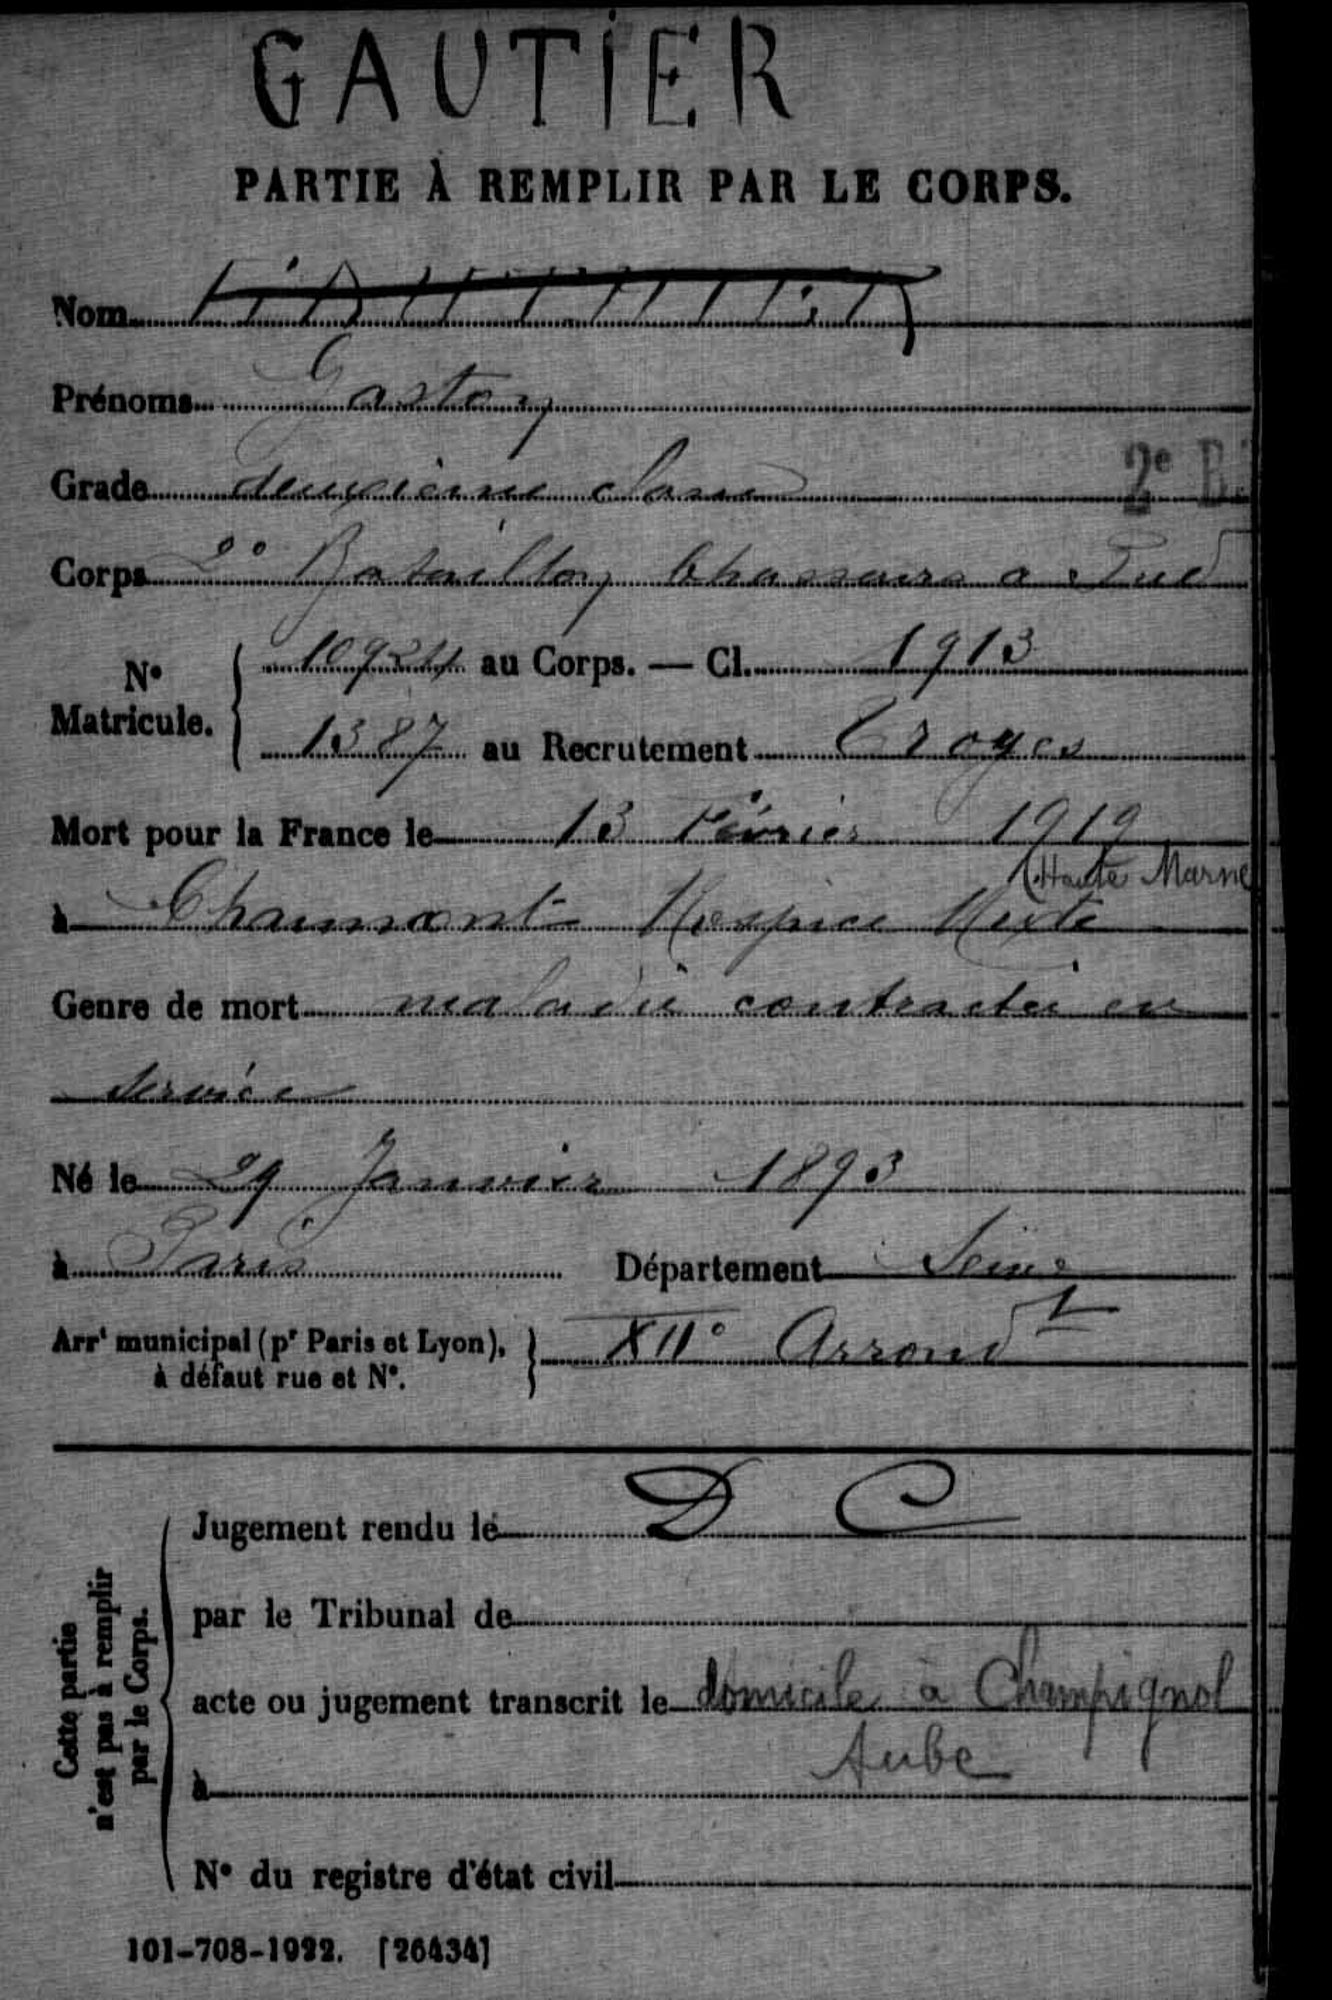 GAUTIER
PARTIE À REMPLIR PAR LE CORPS.
Nom
Prénoms Gaston
Grade deuxième classe
2e B.
Corps 2e Bataillon Chasseurs a Pied
No Matricule. 10924 au Corps. — Cl. 1913
1387 au Recrutement Troyes
Mort pour la France le 13 Février 1919
(Haute Marne
à Chaumont Hospice Mixte
Genre de mort maladie contractée en
service
Né le 29 Janvier 1893
à Paris Département Seine
Arrt municipal (pr Paris et Lyon), XIIe Arrondt
à défaut rue et No.
Cette partie n'est pas à remplir par le Corps.
Jugement rendu le D C
par le Tribunal de
acte ou jugement transcrit le domicile à Champignol
Aube
à
No du registre d'état civil
101-708-1922. [26434]